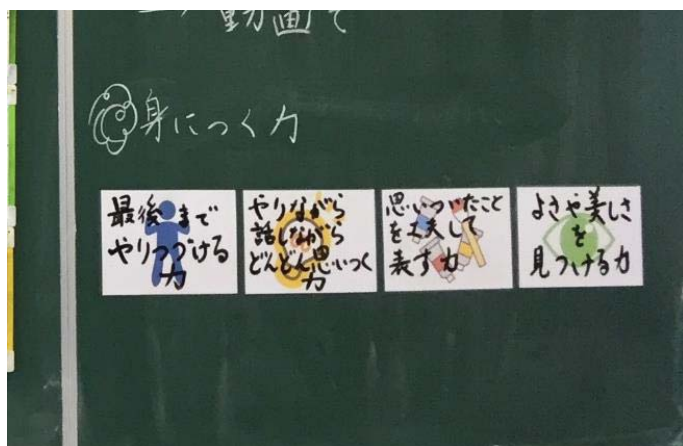 動画で
身につく力
最後まで
やりつづける
力
やりながら
話しながら
どんどん思いつく
力
思いついたこと
を工夫して
表す力
よさや美しさ
を
見つける力